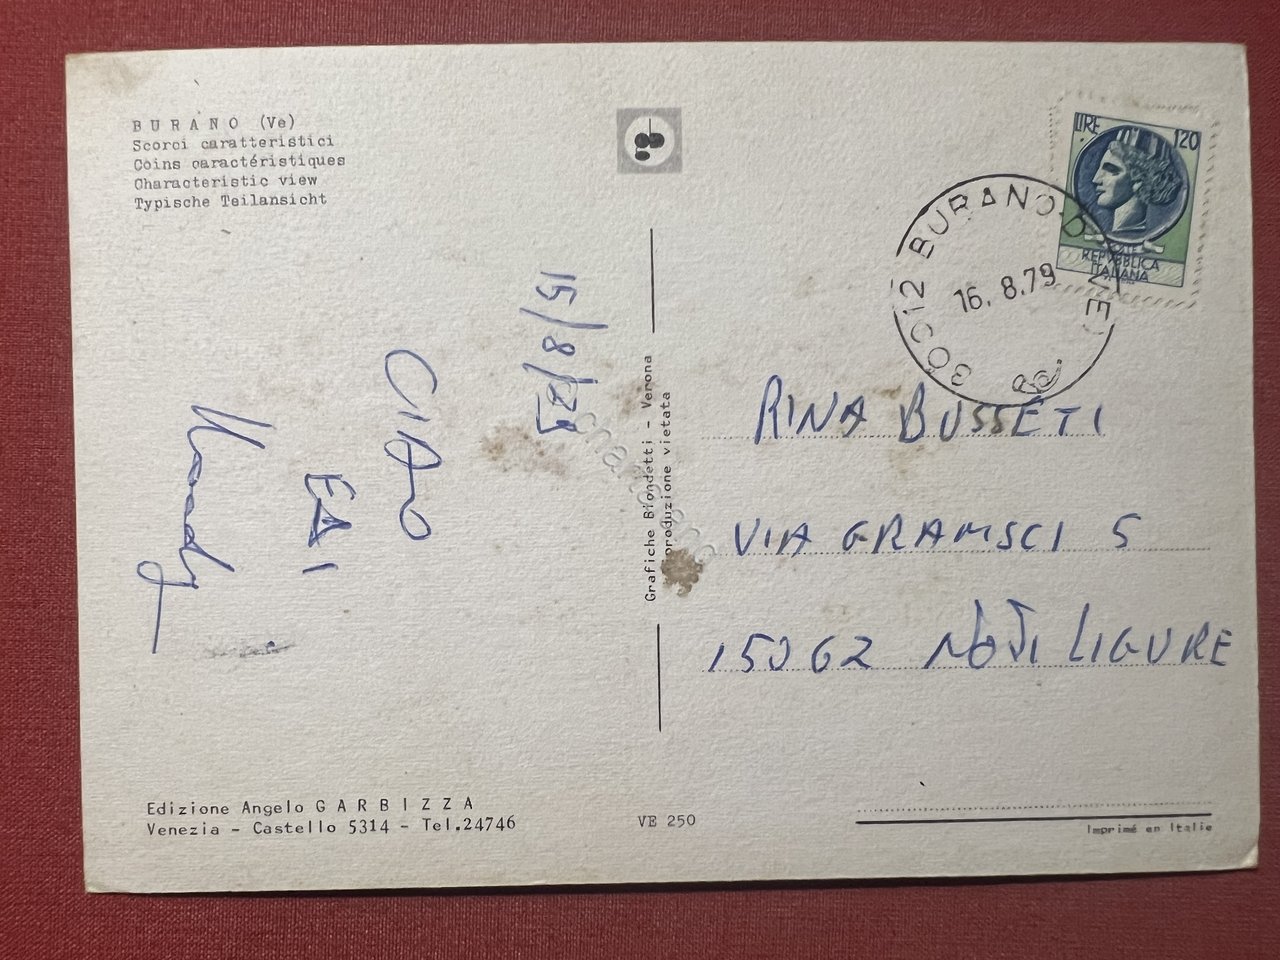 BURANO (Ve)
Scorci caratteristici
Coins caractéristiques
Characteristic view
Typische Teilansicht
LIRE 120
REPUBBLICA
ITALIANA
30012 BURANO (VE)
16.8.79
15/8/79
CIAO
Grafiche Biondetti - Verona
Riproduzione vietata
RINA BUSSETI
VIA GRAMSCI 5
15062 NOVI LIGURE
Edizione Angelo GARBIZZA
Venezia - Castello 5314 - Tel.24746
VE 250
Imprimé en Italie